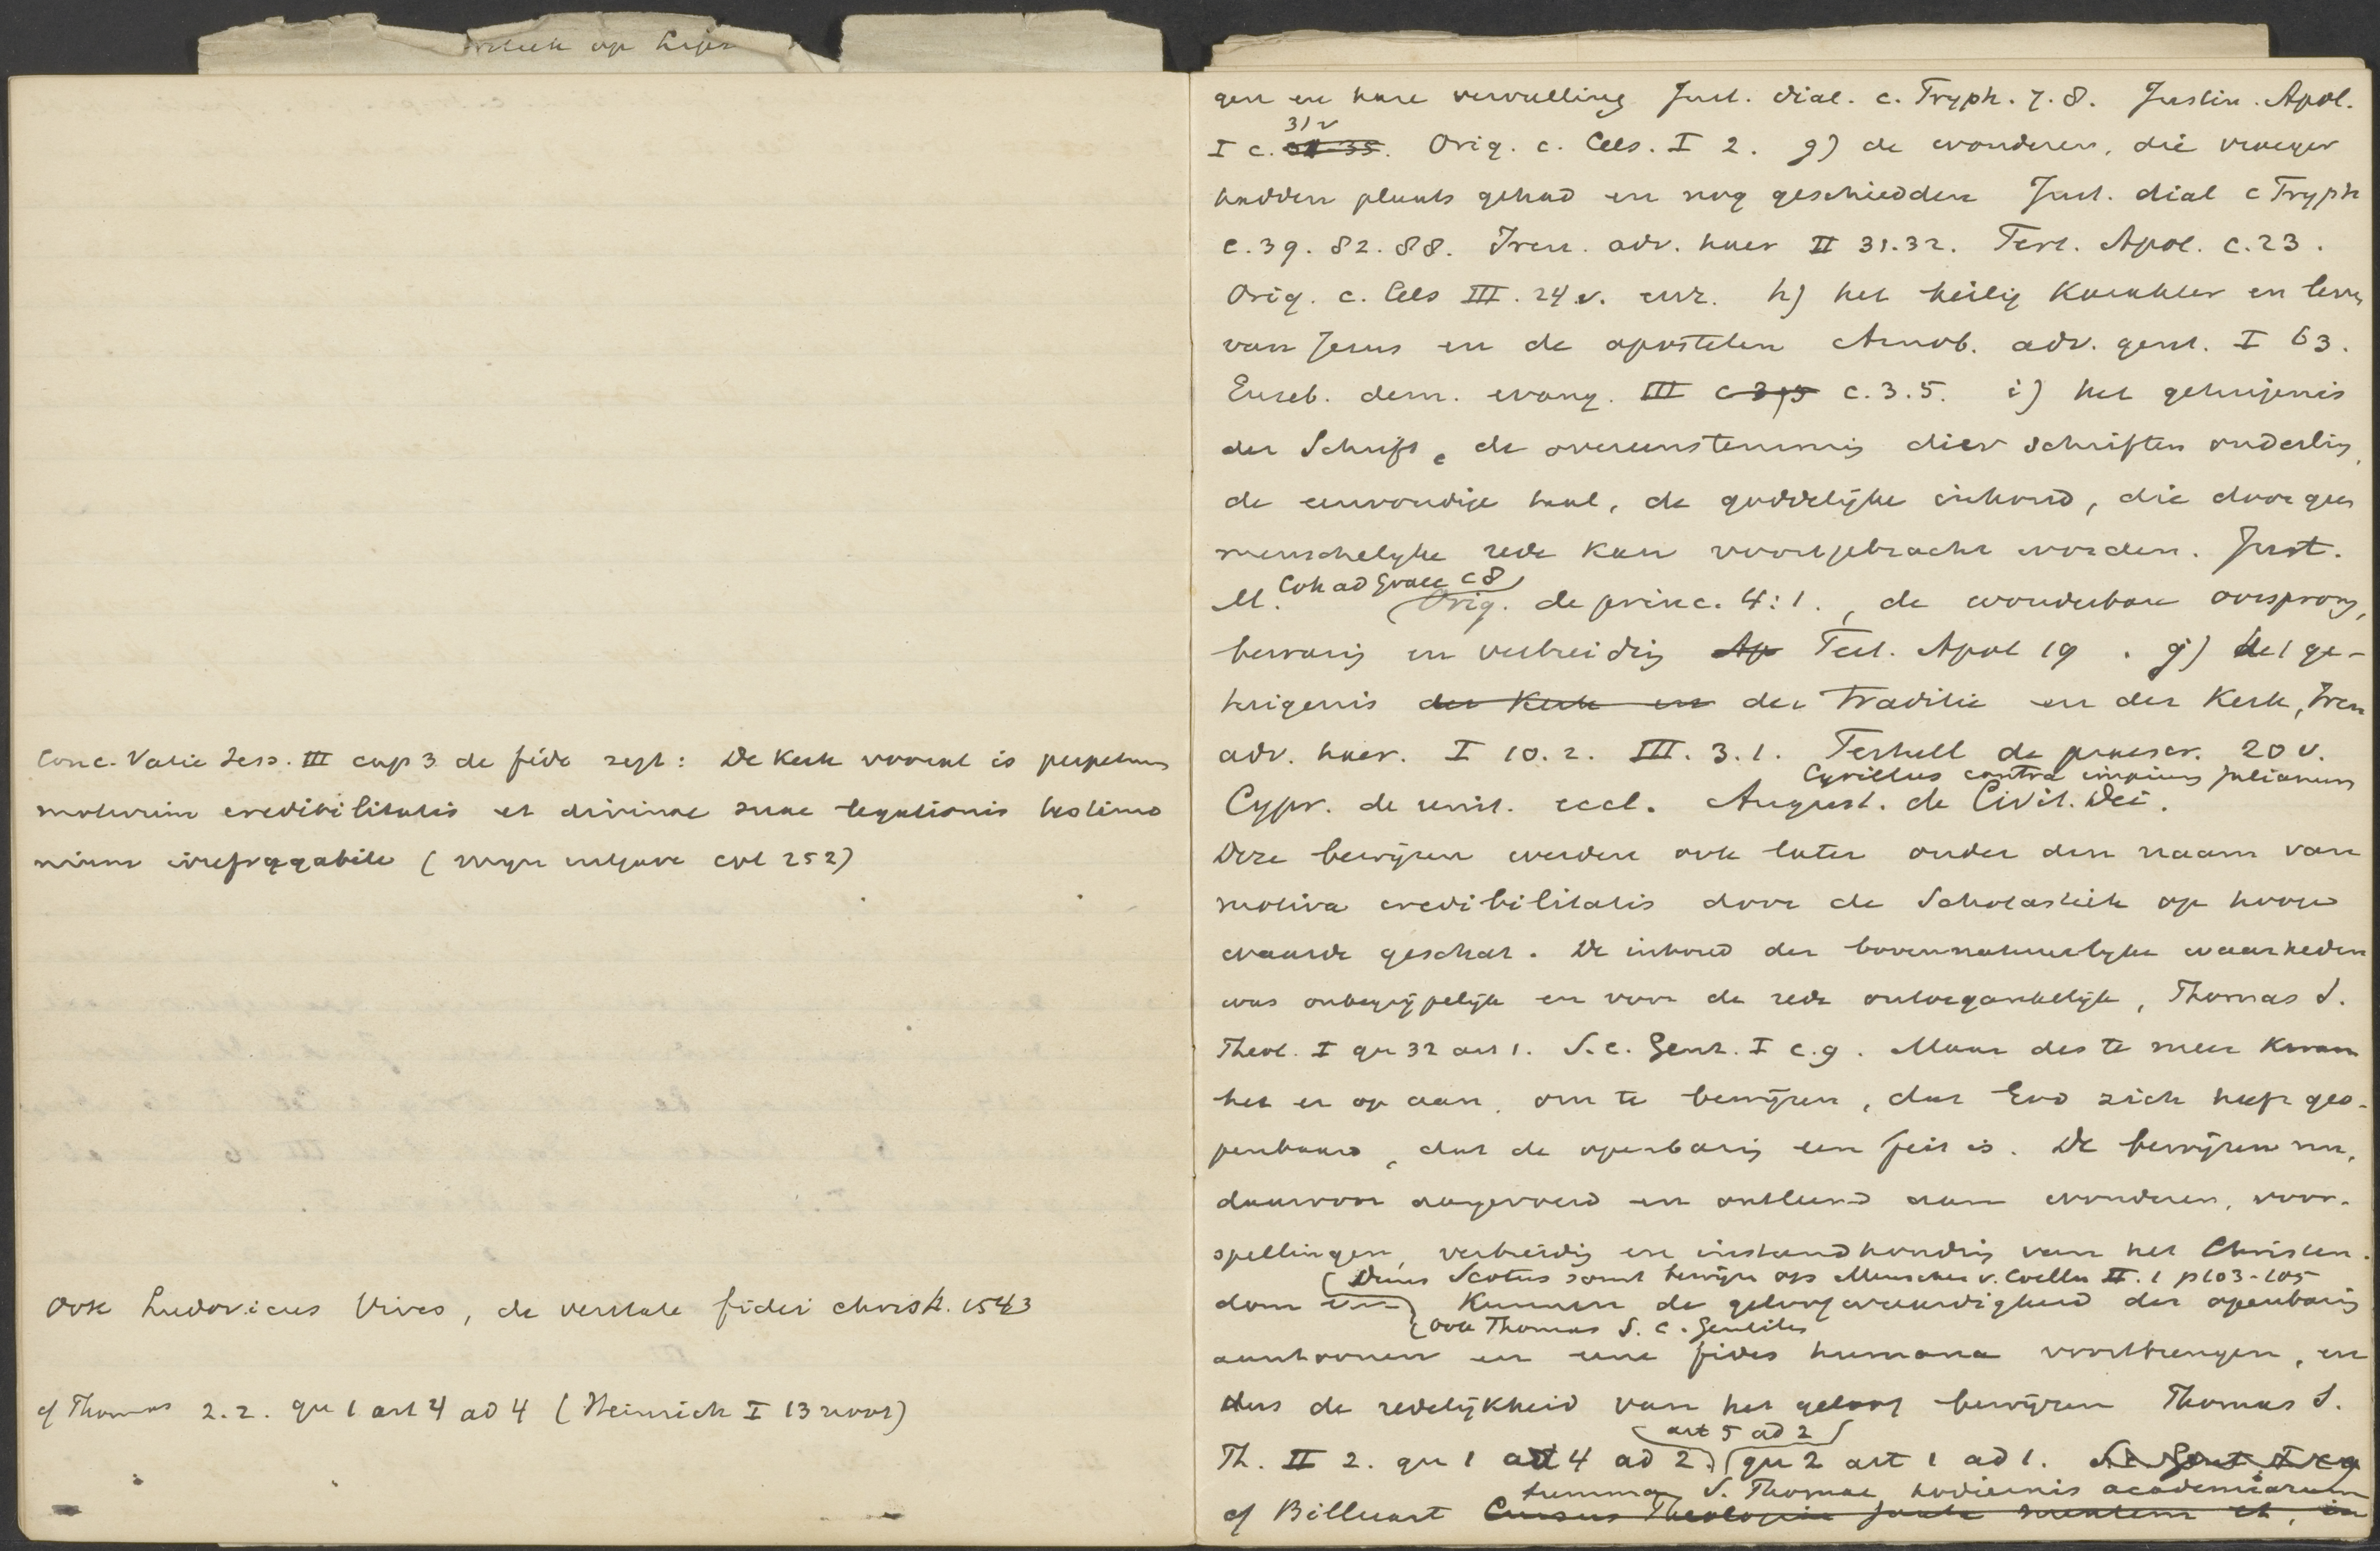 Conc. Vatic Sess. III cap 3 de fide zegt: De Kerk vooral is perpetuum
motivum credibilitatis et divinae suae legationis testimo
nium irrefragabile ( mijn uitgave col 252)
Ook Ludovicus Vives, de veritate fidei christ. 1543
cf Thomas 2.2. qu 1 art 4 ad 4 (Heinrich I 13 noot)
gen en hare vervulling Just. dial. c. Tryph. 7.8. Justin. Apol.
31 v
I c. Orig. c. Cels. I 2. g) de wonderen, die vroeger
hadden plaats gehad en nog geschiedden Just. dial c Tryph
c. 39. 82. 88. Iren. adv. haer II 31.32. Tert. Apol. c. 23.
Orig. c. Cels III. 24 v. enz. h) het heilig karakter en leven
van Jezus en de apostelen Arnob. adv. gent. I 63.
Euseb. dem. evang. III c 3,5 c. 3.5. i) het getuigenis
der Schrift, de overeenstemming dier schriften onderling,
de eenvoudige taal, de goddelijke inhoud, die door geen
menschelyke rede kan voortgebracht worden. Just.
M. Coh ad Graec c 8
Orig. de princ. 4:1., de wonderbare oorsprong,
bewaring en verbreiding Ap Tert. Apol 19. j) het ge-
tuigenis der Kerk en der traditie en der Kerk, Iren
adv. haer. I 10. 2. III. 3. 1. Tertull de praescr. 20 v.
Cyrillus contra impium Julianum
Cypr. de unit. eccl. August. de Civit. Dei.
Deze bewijzen werden ook later onder den naam van
motiva credibilitatis door de Scholastiek op hooge
waarde geschat. De inhoud der bovennatuurlyke waarheden
was onbegrijpelijk en voor de rede ontoegankelijk, Thomas S.
Theol. I qu 32 art 1. S. c. Gent. I c. 9. Maar des te meer kwam
het er op aan, om te bewijzen, dat God zich heeft geo-
penbaard, dat de openbaring een feit is. De bewijzen nu,
daarvoor aangevoerd en ontleend aan wonderen, voor-
spellingen, verbreiding en instandhouding van het Christen-
(Duns Scotus somt bewijzen op Munscher v. Coelln II. 1 p 103-105
dom kunnen de geloofwaardigheid der openbaring
(ook Thomas S. c. Gentiles
aantoonen en eene fides humana voortbrengen, en
dus de redelijkheid van het geloof bewijzen Thomas S.
art 5 ad 2
Th. II 2. qu 1 art 4 ad 2. qu 2 art 1 ad 1. S.c. Gent. I c 9
Summa S. Thomae hodiernis academiarum
cf Billuart Cursus Theologiae juxta mentem et, in